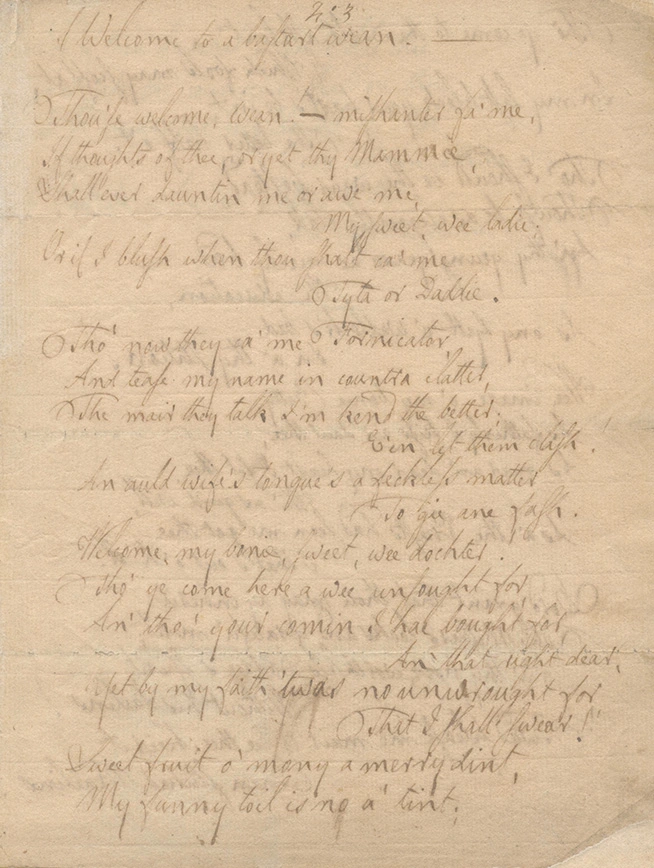 2.3
A Welcome to a bastart wean.
Thou'se welcome, wean! — mishanter fa' me,
If thoughts of thee, or yet thy Mammie
Shall ever dauntin me or awe me,
My sweet wee ladie;
Or if I blush when thou shalt ca' me
Tyta or Daddie.
Tho' now they ca' me Fornicator
And tease my name in countra clatter,
The mair they talk I'm kend the better;
E'en let them clash!
An auld wife's tongue's a feckless matter
To gie ane fash.
Welcome, my bonie, sweet, wee dochter!
Tho' ye come here a wee unsought for,
An' tho' your comin I hae bought for,
An' that right dear,
Yet by my faith 'twas no unwrought for
That I shall swear!
Sweet fruit o' mony a merry dint,
My funny toil is no a' tint;